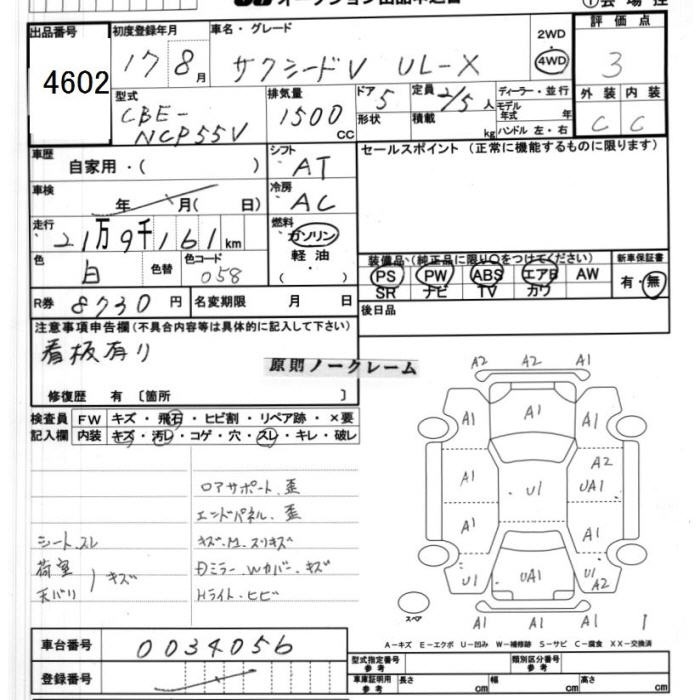 オークション出品申込書
①会場控
出品番号
4602
初度登録年月
17 8月
車名・グレード
サクシードV UL-X
2WD
4WD
評価点
3
外装 内装
C C
型式
CBE-
NCP55V
排気量
1500
CC
ドア
5
形状
定員
2/5人
積載
kg
ディーラー・並行
モデル
年式 年
ハンドル 左・右
車歴
自家用・( )
シフト
AT
セールスポイント (正常に機能するものに限ります)
車検
年 月( 日)
冷房
AC
走行
21万9千161km
燃料
ガソリン
軽油
( ・ )
色
白
色替
色コード
058
装備品(純正品に限り○をつけてください)
新車保証書
PS PW ABS エアB AW
SR ナビ TV カワ
有・無
R券 8730円
名変期限 月 日
後日品
注意事項申告欄(不具合内容等は具体的に記入して下さい)
看板有り
原則ノークレーム
修復歴 有 〔箇所 〕
検査員
記入欄
FW キズ・飛石・ヒビ割・リペア跡・×要
内装 キズ・汚レ・コゲ・穴・スレ・キレ・破レ
ロアサポート、歪
エンドパネル、歪
シート、スレ
キズ、M、スリキズ
荷室
天バリ
キズ
Dミラー Wカバー、キズ
Hライト・ヒビ
A2 A2 A1
A1 A1 A1
A1 U1 A2
UA1
A1 A1
U1 UA1 U1
A2
A1 A1 A1
スペア
1
A-キズ E-エクボ U-凹み W-補修跡 S-サビ C-腐食 XX-交換済
車台番号
0034056
登録番号
型式指定番号
参考
類別区分番号
参考
車庫証明用
参考
長さ cm
幅 cm
高さ cm